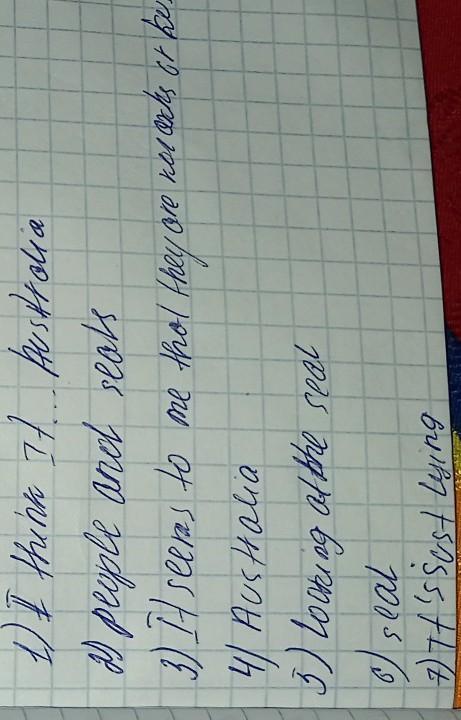 1) I think It... Australia
2) people and seals
3) It seems to me that they are not or
4) Australia
5) Looking at the seal
6) seal
7) It's Just lying